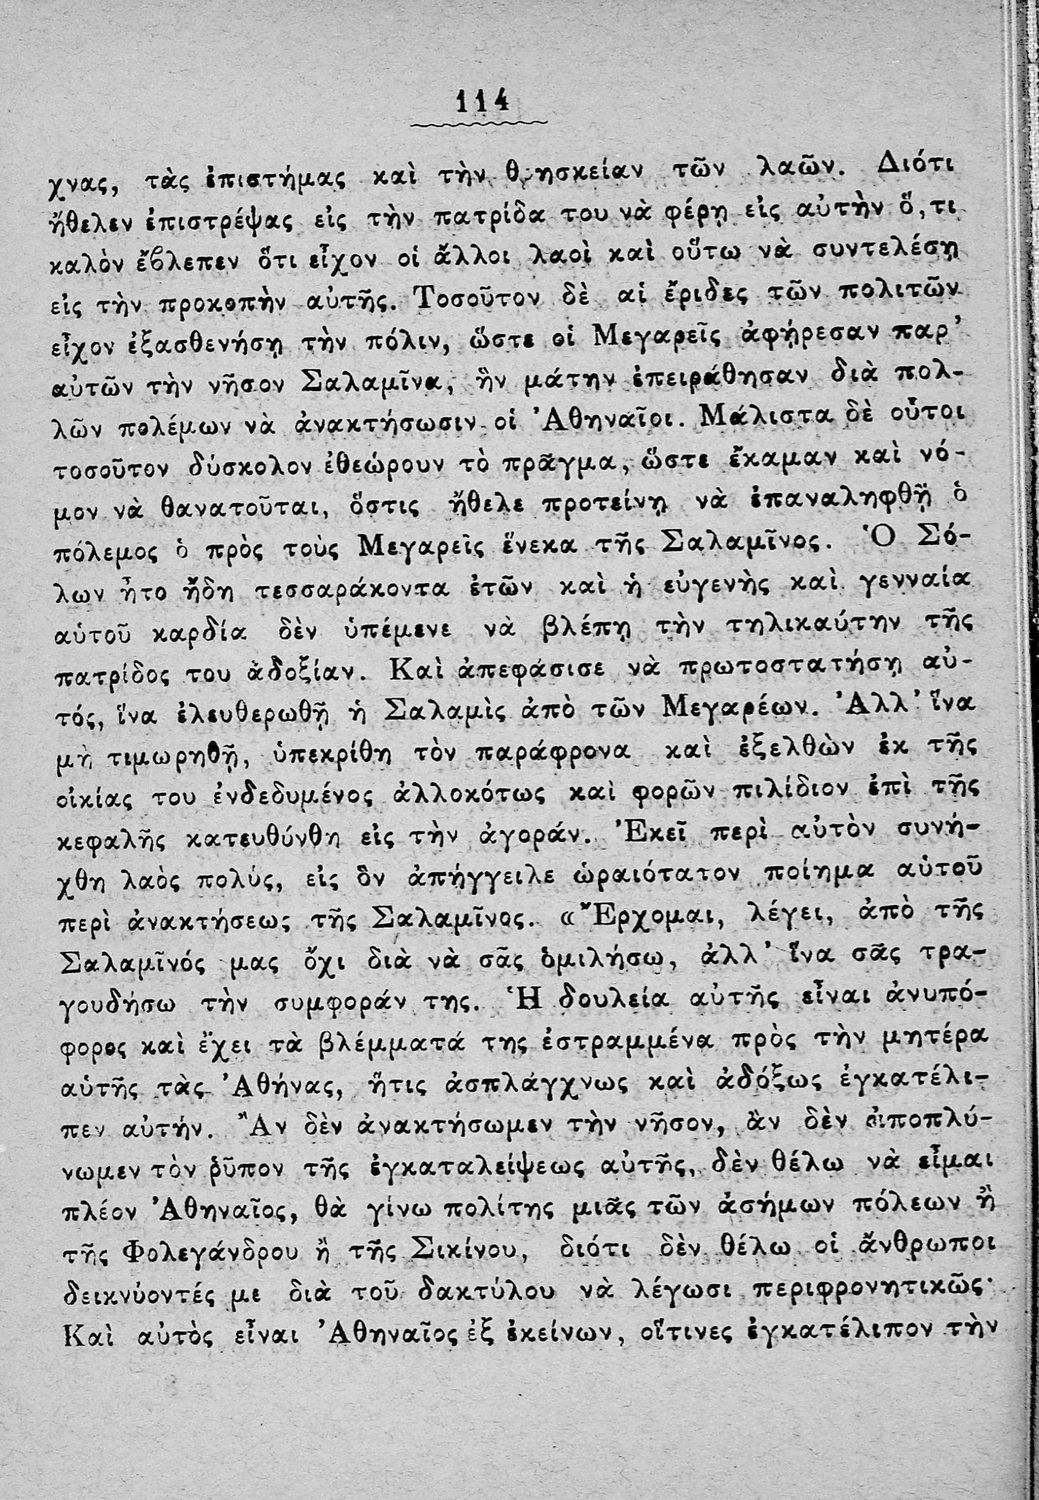 114
χνας, τὰς ἐπιστήμας καὶ τὴν θρησκείαν τῶν λαῶν. Διότι
ἤθελεν ἐπιστρέψας εἰς τὴν πατρίδα του νὰ φέρῃ εἰς αὐτὴν ὅ,τι
καλὸν ἔβλεπεν ὅτι εἶχον οἱ ἄλλοι λαοὶ καὶ οὕτω νὰ συντελέσῃ
εἰς τὴν προκοπὴν αὐτῆς. Τοσοῦτον δὲ αἱ ἔριδες τῶν πολιτῶν
εἶχον ἐξασθενήσῃ τὴν πόλιν, ὥστε οἱ Μεγαρεῖς ἀφῄρεσαν παρ’
αὐτῶν τὴν νῆσον Σαλαμῖνα, ἣν μάτην ἐπειράθησαν διὰ πολ-
λῶν πολέμων νὰ ἀνακτήσωσιν οἱ Ἀθηναῖοι. Μάλιστα δὲ οὗτοι
τοσοῦτον δύσκολον ἐθεώρουν τὸ πρᾶγμα, ὥστε ἔκαμαν καὶ νό-
μον νὰ θανατοῦται, ὅστις ἤθελε προτείνῃ νὰ ἐπαναληφθῇ ὁ
πόλεμος ὁ πρὸς τοὺς Μεγαρεῖς ἕνεκα τῆς Σαλαμῖνος. Ὁ Σό-
λων ἦτο ἤδη τεσσαράκοντα ἐτῶν καὶ ἡ εὐγενὴς καὶ γενναία
αὑτοῦ καρδία δὲν ὑπέμενε νὰ βλέπῃ τὴν τηλικαύτην τῆς
πατρίδος του ἀδοξίαν. Καὶ ἀπεφάσισε νὰ πρωτοστατήσῃ αὐ-
τός, ἵνα ἐλευθερωθῇ ἡ Σαλαμὶς ἀπὸ τῶν Μεγαρέων. Ἀλλ’ ἵνα
μὴ τιμωρηθῇ, ὑπεκρίθη τὸν παράφρονα καὶ ἐξελθὼν ἐκ τῆς
οἰκίας του ἐνδεδυμένος ἀλλοκότως καὶ φορῶν πιλίδιον ἐπὶ τῆς
κεφαλῆς κατευθύνθη εἰς τὴν ἀγοράν. Ἐκεῖ περὶ αὐτὸν συνή-
χθη λαὸς πολύς, εἰς ὃν ἀπήγγειλε ὡραιότατον ποίημα αὑτοῦ
περὶ ἀνακτήσεως τῆς Σαλαμῖνος. «Ἔρχομαι, λέγει, ἀπὸ τῆς
Σαλαμῖνός μας ὄχι διὰ νὰ σᾶς ὁμιλήσω, ἀλλ’ ἵνα σᾶς τρα-
γουδήσω τὴν συμφοράν της. Ἡ δουλεία αὐτῆς εἶναι ἀνυπό-
φορος καὶ ἔχει τὰ βλέμματά της ἐστραμμένα πρὸς τὴν μητέρα
αὑτῆς τὰς Ἀθήνας, ἥτις ἀσπλάγχνως καὶ ἀδόξως ἐγκατέλι-
πεν αὐτήν. Ἂν δὲν ἀνακτήσωμεν τὴν νῆσον, ἂν δὲν ἀποπλύ-
νωμεν τὸν ῥῦπον τῆς ἐγκαταλείψεως αὐτῆς, δὲν θέλω νὰ εἶμαι
πλέον Ἀθηναῖος, θὰ γίνω πολίτης μιᾶς τῶν ἀσήμων πόλεων ἢ
τῆς Φολεγάνδρου ἢ τῆς Σικίνου, διότι δὲν θέλω οἱ ἄνθρωποι
δεικνύοντές με διὰ τοῦ δακτύλου νὰ λέγωσι περιφρονητικῶς·
Καὶ αὐτὸς εἶναι Ἀθηναῖος ἐξ ἐκείνων, οἵτινες ἐγκατέλιπον τὴν